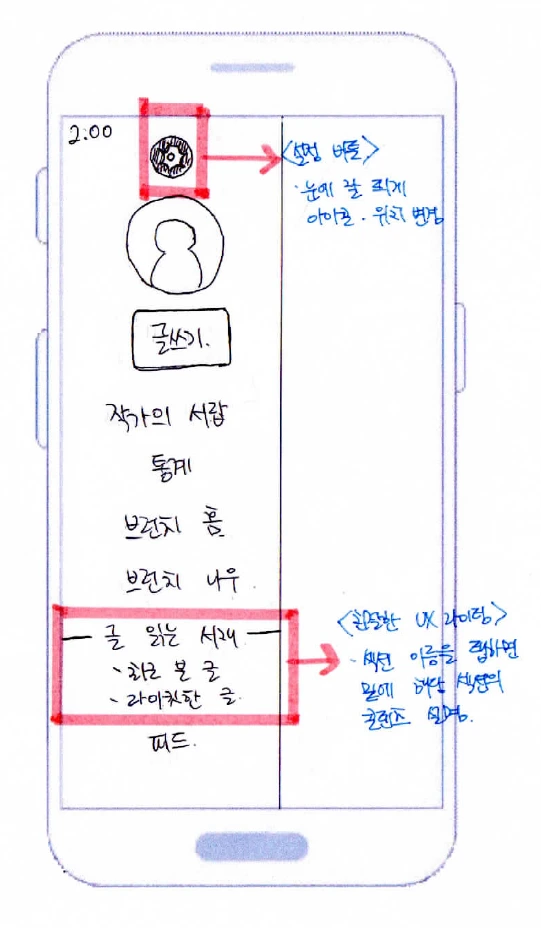 2:00
<설정 버튼>
· 눈에 잘 띄게
아이콘 · 위치 변경
글쓰기.
작가의 서랍
통계
브런치 홈
브런치 나우.
글 읽는 서재
· 최근 본 글
· 라이킷한 글.
피드.
<친절한 UX 라이팅>
· 섹션 이름을 탭하면
밑에 해당 섹션의
콘텐츠 설명.